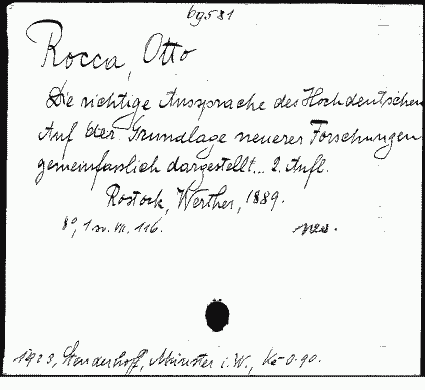 bg581
Rocca, Otto
Die richtige Aussprache des Hochdeutschen
Auf der Grundlage neuerer Forschungen
gemeinfasslich dargestellt... 2. Aufl.
Rostock, Werther, 1889.
8°, 1 sv. m. 116.
1923, Stenderhoff, Münster i. W., Kč 0.90.